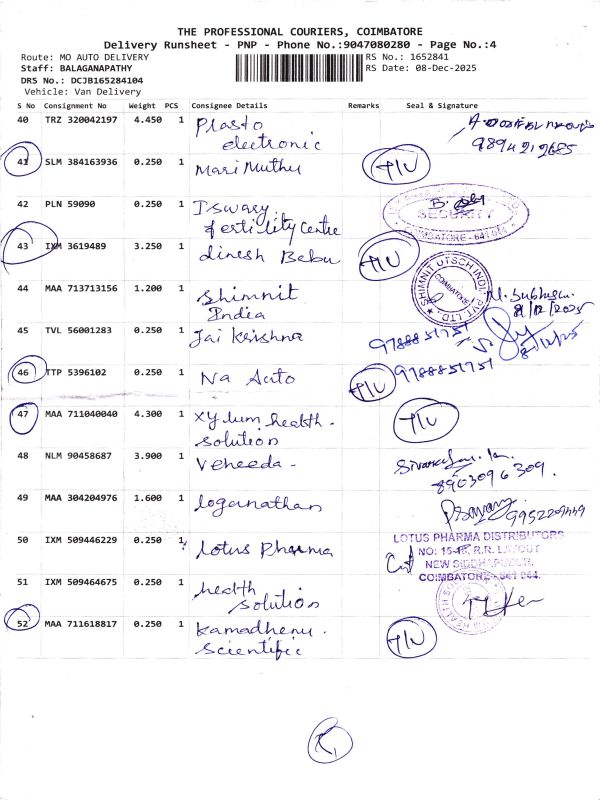 THE PROFESSIONAL COURIERS, COIMBATORE
Delivery Runsheet - PNP - Phone No.:9047080280 - Page No.:4
Route: MO AUTO DELIVERY
RS No.: 1652841
Staff: BALAGANAPATHY
RS Date: 08-Dec-2025
DRS No.: DCJB165284104
Vehicle: Van Delivery
S No Consignment No Weight PCS Consignee Details Remarks Seal & Signature
40 TRZ 320042197 4.450 1 Plasto
electronic
9894212685
41 SLM 384163936 0.250 1 Mari Muthu T/U
42 PLN 59090 0.250 1 Iswary
fertility Centre
SECURITY
COIMBATORE - 641
43 IXM 3619489 3.250 1 dinesh Babu T/U
44 MAA 713713156 1.200 1 Shimnit
India
SHIMNIT UTSCH INDIA PVT. LTD.
COIMBATORE
8/12/2025
45 TVL 56001283 0.250 1 Jai Krishna 9788851751
46 TTP 5396102 0.250 1 Na Auto T/U 9788851751
47 MAA 711040040 4.300 1 xylum health.
solution
T/U
48 NLM 90458687 3.900 1 Veheeda -
8903096309.
49 MAA 304204976 1.600 1 loganathan
9952209449
50 IXM 509446229 0.250 1 Lotus Pharma
LOTUS PHARMA DISTRIBUTORS
NO: 15-16, R.R. LAYOUT
NEW SIDDHAPUDUR,
COIMBATORE - 641 044.
51 IXM 509464675 0.250 1 health
solution
52 MAA 711618817 0.250 1 Kamadhenu.
Scientific
T/U